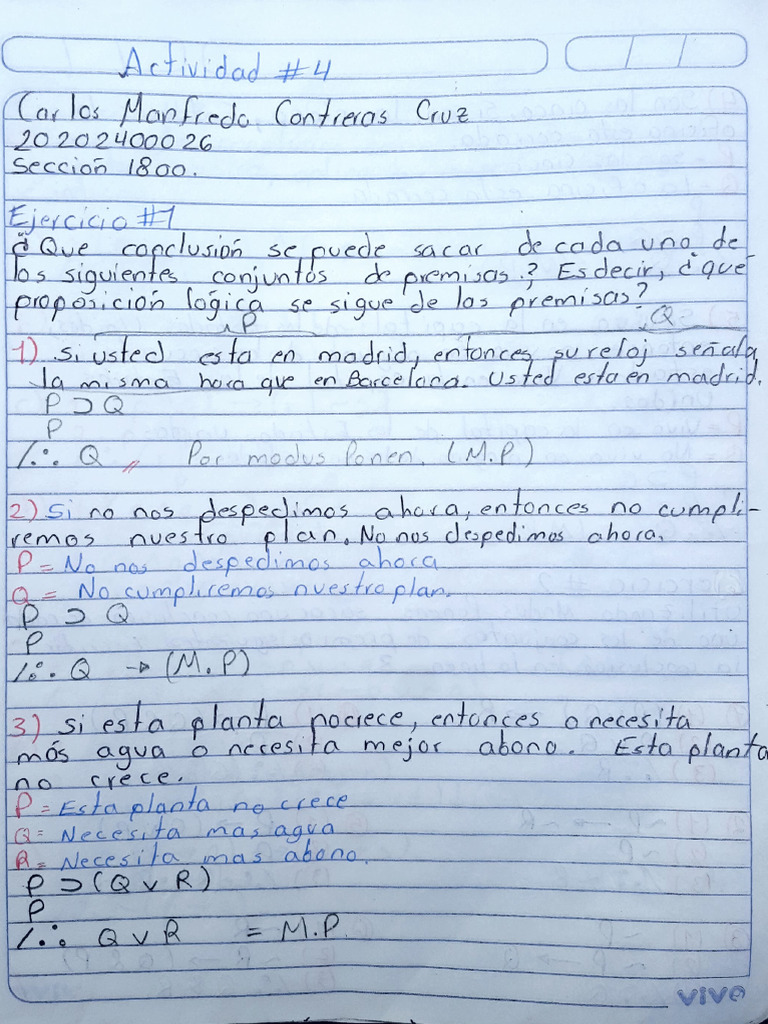 Actividad #4
Carlos Manfredo Contreras Cruz
20202400026
Sección 1800.
Ejercicio #1
¿Que conclusión se puede sacar de cada uno de
los siguientes conjuntos de premisas? Es decir, ¿que
proposición lógica se sigue de las premisas?
P Q
1) si usted esta en madrid, entonces su reloj señala
la misma hora que en Barcelona. Usted esta en madrid.
P ⊃ Q
P
/∴ Q // Por modus Ponen. (M.P)
2) Si no nos despedimos ahora, entonces no cumpli-
remos nuestro plan. No nos despedimos ahora.
P = No nos despedimos ahora
Q = No cumpliremos nuestro plan.
P ⊃ Q
P
/∴ Q → (M.P)
3) si esta planta nocrece, entonces o necesita
más agua o necesita mejor abono. Esta planta
no crece.
P = Esta planta no crece
Q = Necesita mas agua
R = Necesita mas abono.
P ⊃ (Q v R)
P
/∴ Q v R = M.P.
vivo